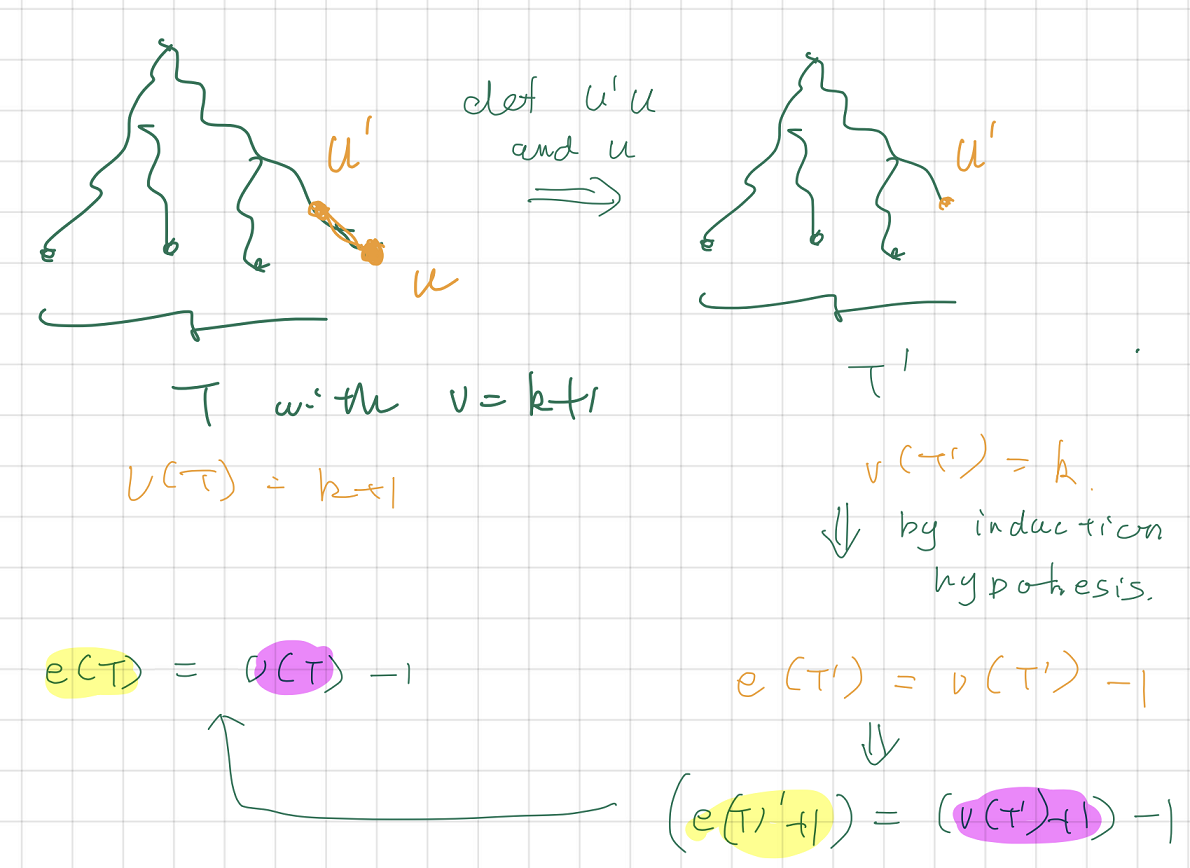 def u'u
and u
u'
u
u'
T with v = k+1
T'
v(T) = k+1
v(T') = k.
by induction
hypothesis.
e(T) = v(T) - 1
e(T') = v(T') - 1
(e(T)'+1) = (v(T')+1) - 1